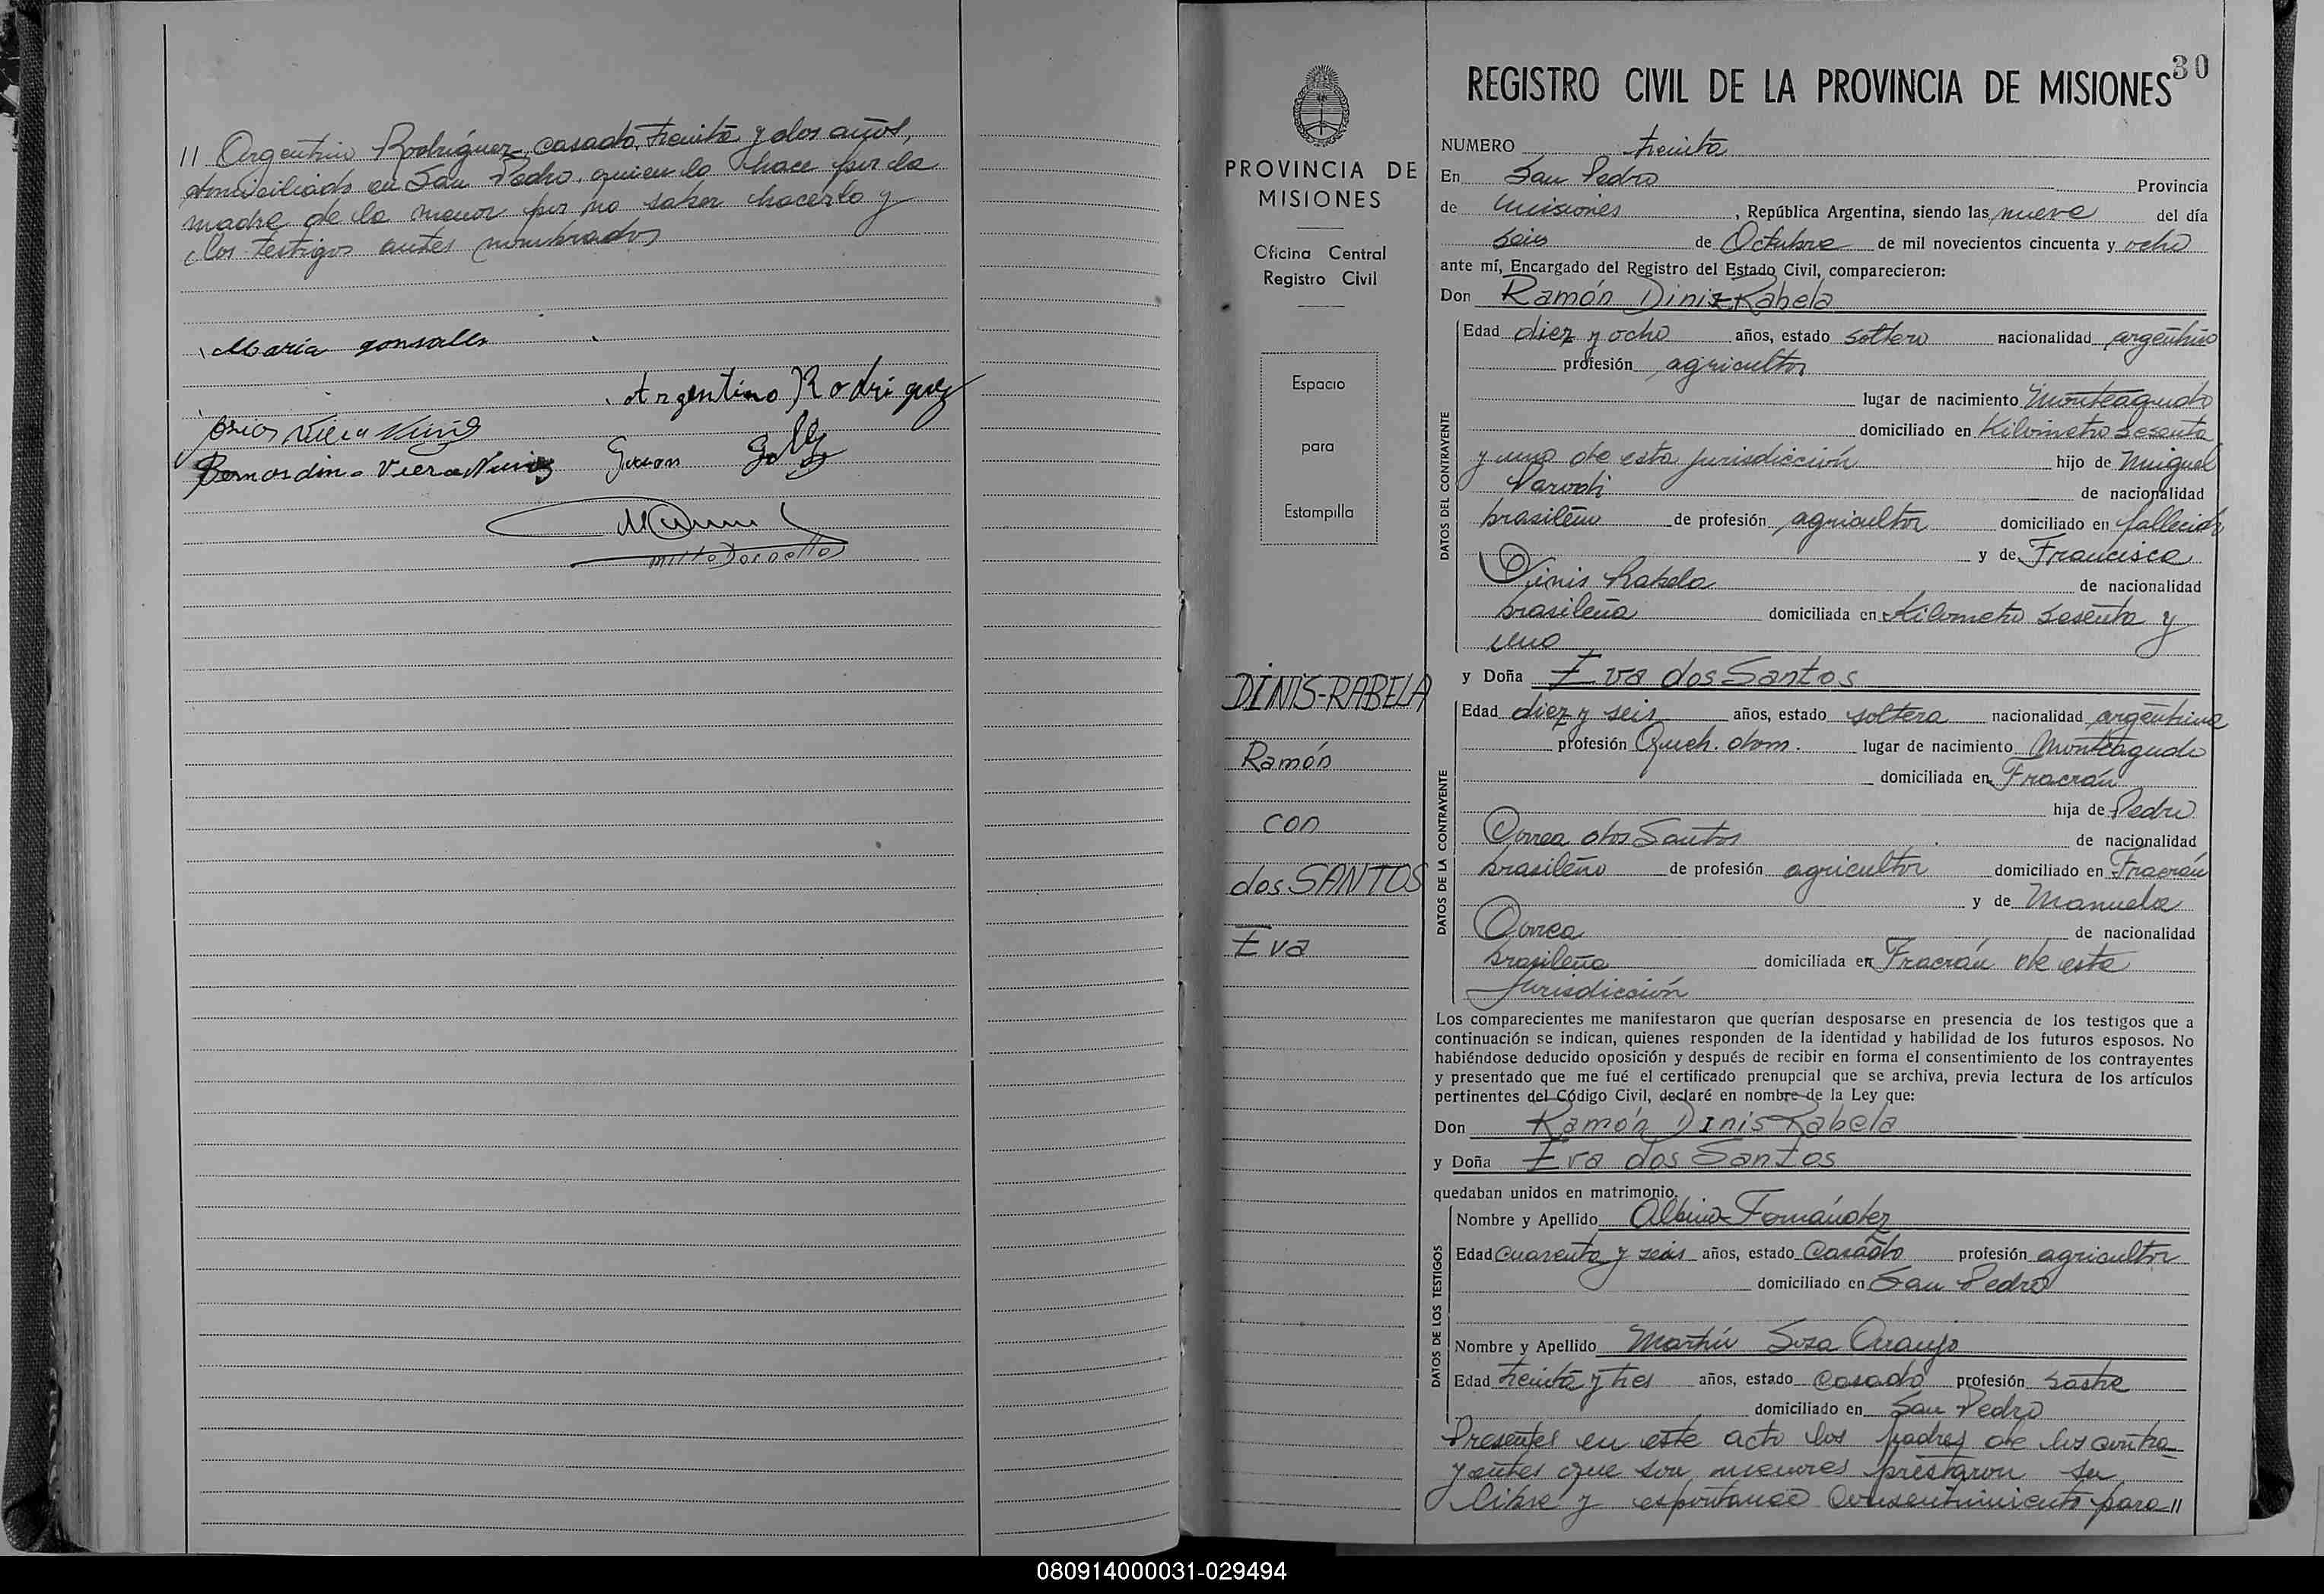 // Argentino Rodríguez, casado, treinta y dos años,
domiciliado en San Pedro, quien lo hace por la
madre de la menor por no saber hacerlo y
los testigos antes nombrados
María gonsalles
Argentino Rodriguez
Bernardino Viera Nunes
30
REGISTRO CIVIL DE LA PROVINCIA DE MISIONES
PROVINCIA DE
MISIONES
Oficina Central
Registro Civil
Espacio
para
Estampilla
DINIS-RABELA
Ramón
con
dos SANTOS
Eva
NUMERO treinta
En San Pedro Provincia
de Misiones, República Argentina, siendo las nueve del día
seis de Octubre de mil novecientos cincuenta y ocho
ante mí, Encargado del Registro del Estado Civil, comparecieron:
Don Ramón Dinis Rabela
DATOS DEL CONTRAYENTE
Edad diez y ocho años, estado soltero nacionalidad argentino
profesión agricultor
lugar de nacimiento Monteagudo
domiciliado en Kilometro sesenta
y uno de esta jurisdicción hijo de Miguel
Parodi de nacionalidad
brasileño de profesión agricultor domiciliado en fallecido
y de Francisca
Dinis Rabela de nacionalidad
brasileña domiciliada en Kilometro sesenta y
uno
y Doña Eva dos Santos
DATOS DE LA CONTRAYENTE
Edad diez y seis años, estado soltera nacionalidad argentina
profesión Queh. dom. lugar de nacimiento Monteagudo
domiciliada en Fracrán
hija de Pedro
Correa dos Santos de nacionalidad
brasileño de profesión agricultor domiciliado en Fracrán
y de Manuela
Correa de nacionalidad
brasileña domiciliada en Fracrán de esta
Jurisdicción
Los comparecientes me manifestaron que querían desposarse en presencia de los testigos que a
continuación se indican, quienes responden de la identidad y habilidad de los futuros esposos. No
habiéndose deducido oposición y después de recibir en forma el consentimiento de los contrayentes
y presentado que me fué el certificado prenupcial que se archiva, previa lectura de los artículos
pertinentes del Código Civil, declaré en nombre de la Ley que:
Don Ramón Dinis Rabela
y Doña Eva dos Santos
quedaban unidos en matrimonio.
DATOS DE LOS TESTIGOS
Nombre y Apellido Albino Fernández
Edad cuarenta y seis años, estado Casado profesión agricultor
domiciliado en San Pedro
Nombre y Apellido Martín Sosa Araujo
Edad treinta y tres años, estado Casado profesión sastre
domiciliado en San Pedro
Presentes en este acto los padres de los contra-
yentes que son menores prestaron su
libre y espontaneo consentimiento para //
080914000031-029494